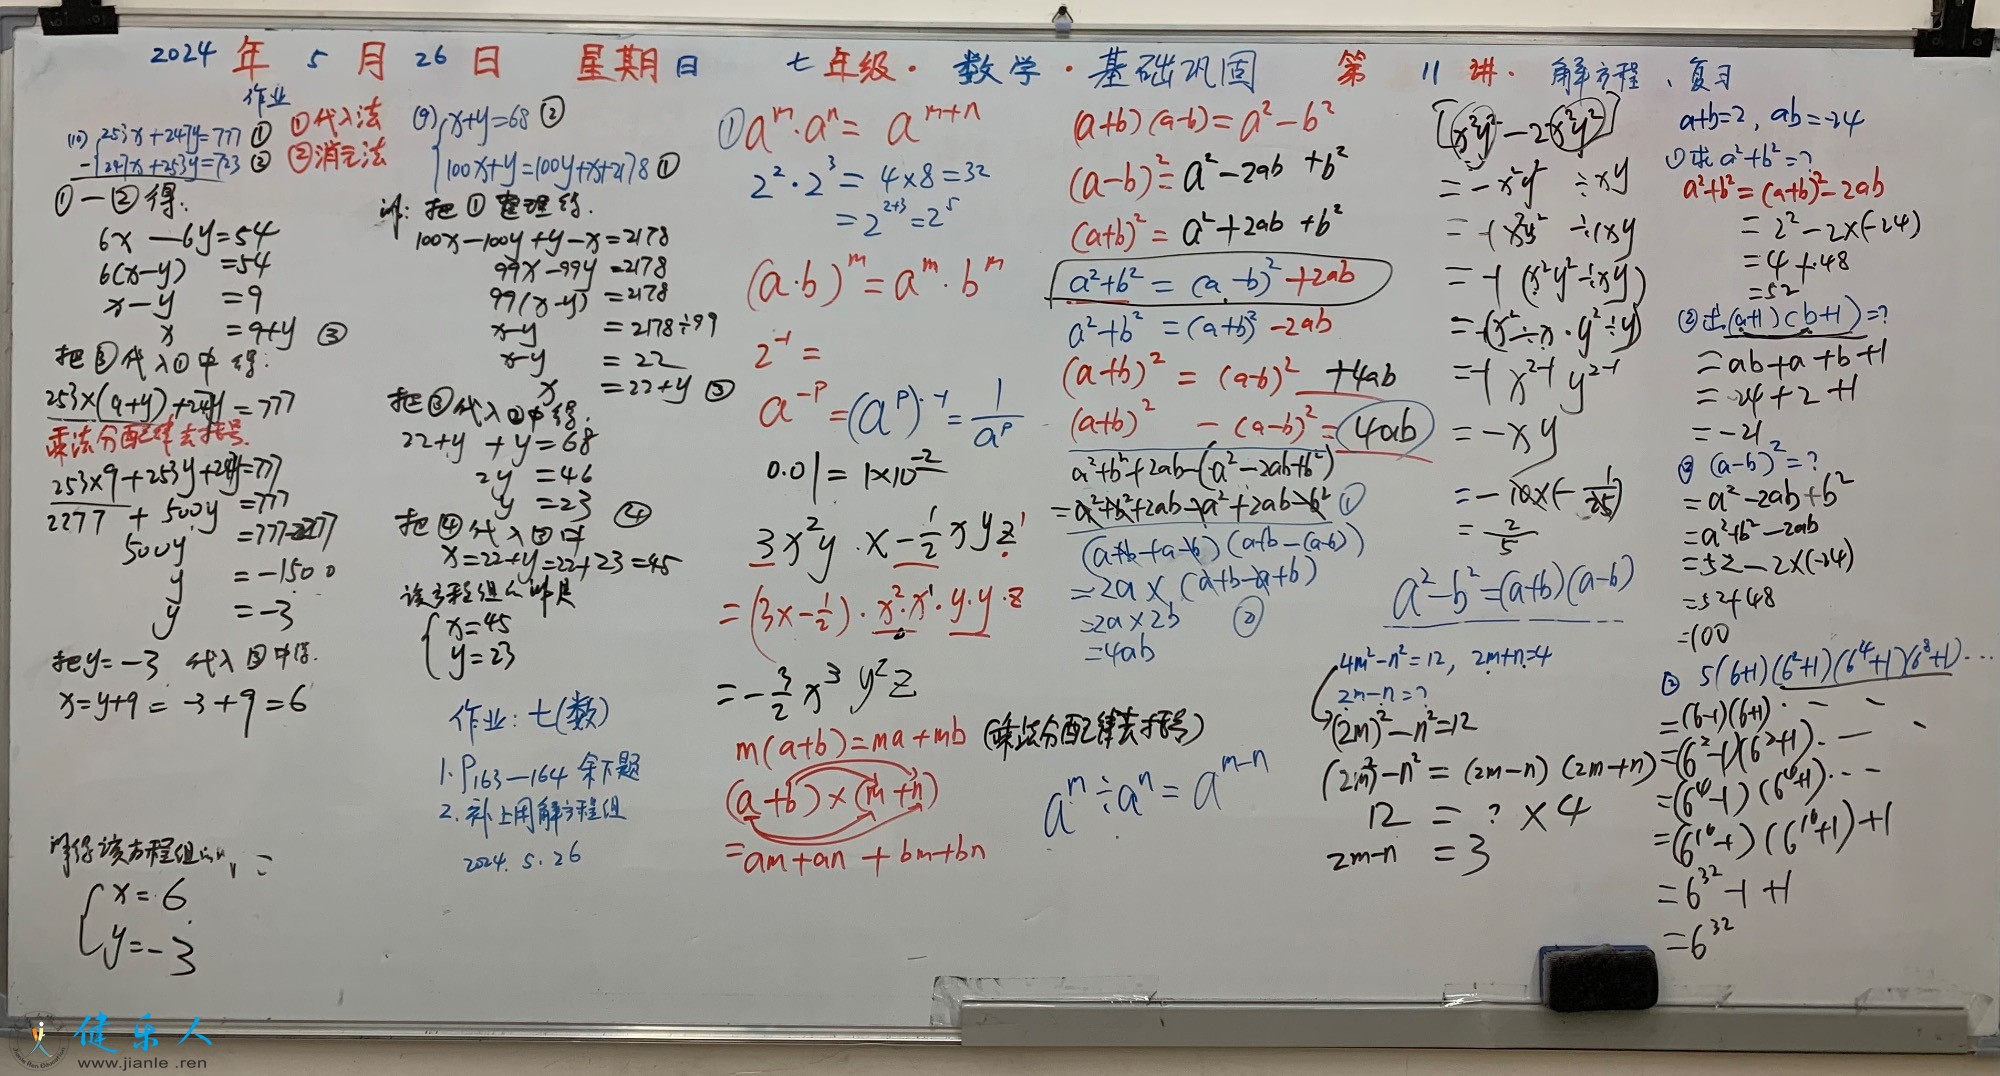 2024 年 5 月 26 日 星期日 七年级·数学·基础巩固 第 11 讲·解方程、复习
作业
(10) 253x+247y=777 ①
247x+253y=723 ②
①代入法
②消元法
①-②得:
6x-6y=54
6(x-y)=54
x-y=9
x=9+y ③
把③代入①中得:
253×(9+y)+247y=777
乘法分配律去括号.
253×9+253y+247y=777
2277+500y=777
500y=777-2277
y=-1500
y=-3
把y=-3代入③中得.
x=y+9=-3+9=6
x=6
y=-3
(9) x+y=68 ②
100x+y=100y+x+2178 ①
解:把①整理得.
100x-100y+y-x=2178
99x-99y=2178
99(x-y)=2178
x-y=2178÷99
x-y=22
x=22+y ③
把③代入②中得:
22+y+y=68
2y=46
y=23 ④
把④代入③中
x=22+y=22+23=45
该方程组的解是
x=45
y=23
作业:七(数)
1.P163—164 余下题
2.补上用解方程组
2024.5.26
①aᵐ·aⁿ=aᵐ⁺ⁿ
2²·2³=4×8=32
=2²⁺³=2⁵
(a·b)ᵐ=aᵐ·bᵐ
2⁻¹=
a⁻ᵖ=(aᵖ)⁻¹=1/aᵖ
0.01=1×10⁻²
3x²y·x-1/2xyz¹
=(3×-1/2)·x²·x¹·y·y·z
=-3/2x³y²z
m(a+b)=ma+mb (乘法分配律去括号)
(a+b)×(m+n)
=am+an+bm+bn
aᵐ÷aⁿ=aᵐ⁻ⁿ
(a+b)(a-b)=a²-b²
(a-b)²=a²-2ab+b²
(a+b)²=a²+2ab+b²
a²+b²=(a-b)²+2ab
a²+b²=(a+b)²-2ab
(a+b)²=(a-b)²+4ab
(a+b)²-(a-b)²=4ab
a²+b²+2ab-(a²-2ab+b²)
=a²+b²+2ab-a²+2ab-b² ①
(a+b+a-b)(a+b-(a-b))
=2a×(a+b-a+b)
=2a×2b ②
=4ab
[x²y²-2x²y²]
=-x²y²÷xy
=-1x²y²÷1xy
=-1(x²y²÷xy)
=-(x²÷x·y²÷y)
=-1x²⁻¹y²⁻¹
=-xy
=-10×(-1/25)
=2/5
a²-b²=(a+b)(a-b)
4m²-n²=12, 2m+n=4
2m-n=?
(2m)²-n²=12
(2m)²-n²=(2m-n)(2m+n)
12=?×4
2m-n=3
a+b=2, ab=-24
①求a²+b²=?
a²+b²=(a+b)²-2ab
=2²-2×(-24)
=4+48
=52
②求(a+1)(b+1)=?
=ab+a+b+1
=-24+2+1
=-21
③(a-b)²=?
=a²-2ab+b²
=a²+b²-2ab
=52-2×(-24)
=52+48
=100
② 5(6+1)(6²+1)(6⁴+1)(6⁸+1)…
=(6-1)(6+1)·— — —
=(6²-1)(6²+1)·— —
=(6⁴-1)(6⁴+1)…
=(6¹⁶-1)(6¹⁶+1)+1
=6³²-1+1
=6³²
健乐人
www.jianle.ren